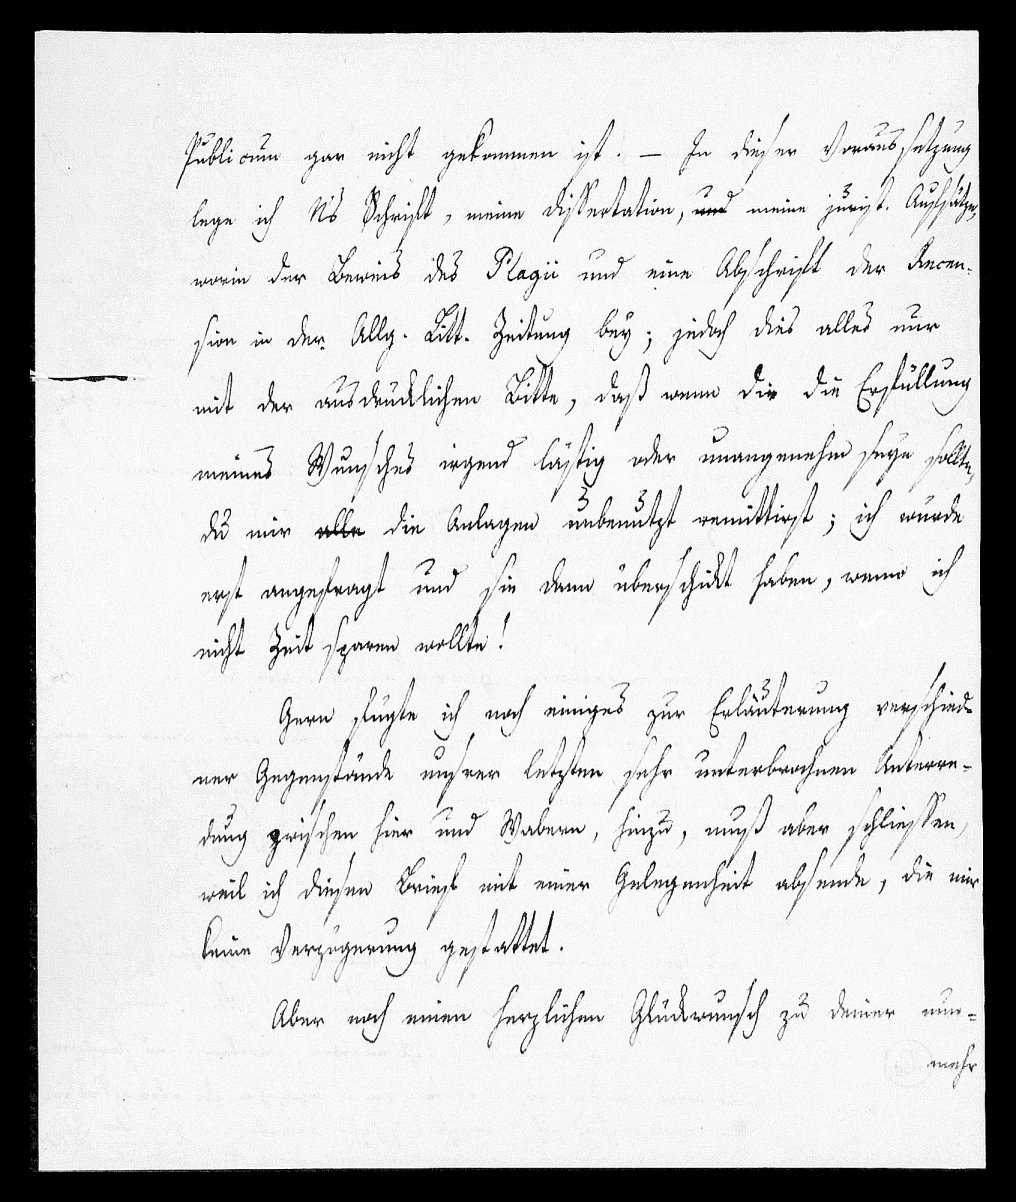 Publicum gar nicht gekommen ist. — In dieser Voraussetzung
lege ich N's Schrift, meine Dissertation, und meine jurist. Aufsätze,
worin der Beweis des Plagii und eine Abschrift der Recen-
sion in der Allg. Litt. Zeitung bey; jedoch dies alles nur
mit der ausdrücklichen Bitte, daß wenn dir die Erfüllung
meines Wunsches irgend lästig oder unangenehm seyn sollte,
du mir alle die Anlagen unbenutzt remittirst; ich würde
erst angefragt und sie dann überschickt haben, wenn ich
nicht Zeit sparen wollte!
Gern fügte ich noch einiges zur Erläuterung verschied-
ner Gegenstände unsrer letzten sehr unterbrochnen Unterre-
dung zwischen hier und Wabern, hinzu, muß aber schliessen,
weil ich diesen Brief mit einer Gelegenheit absende, die mir
keine Verzögerung gestattet.
Aber noch einen herzlichen Glückwunsch zu deiner nun-
mehr